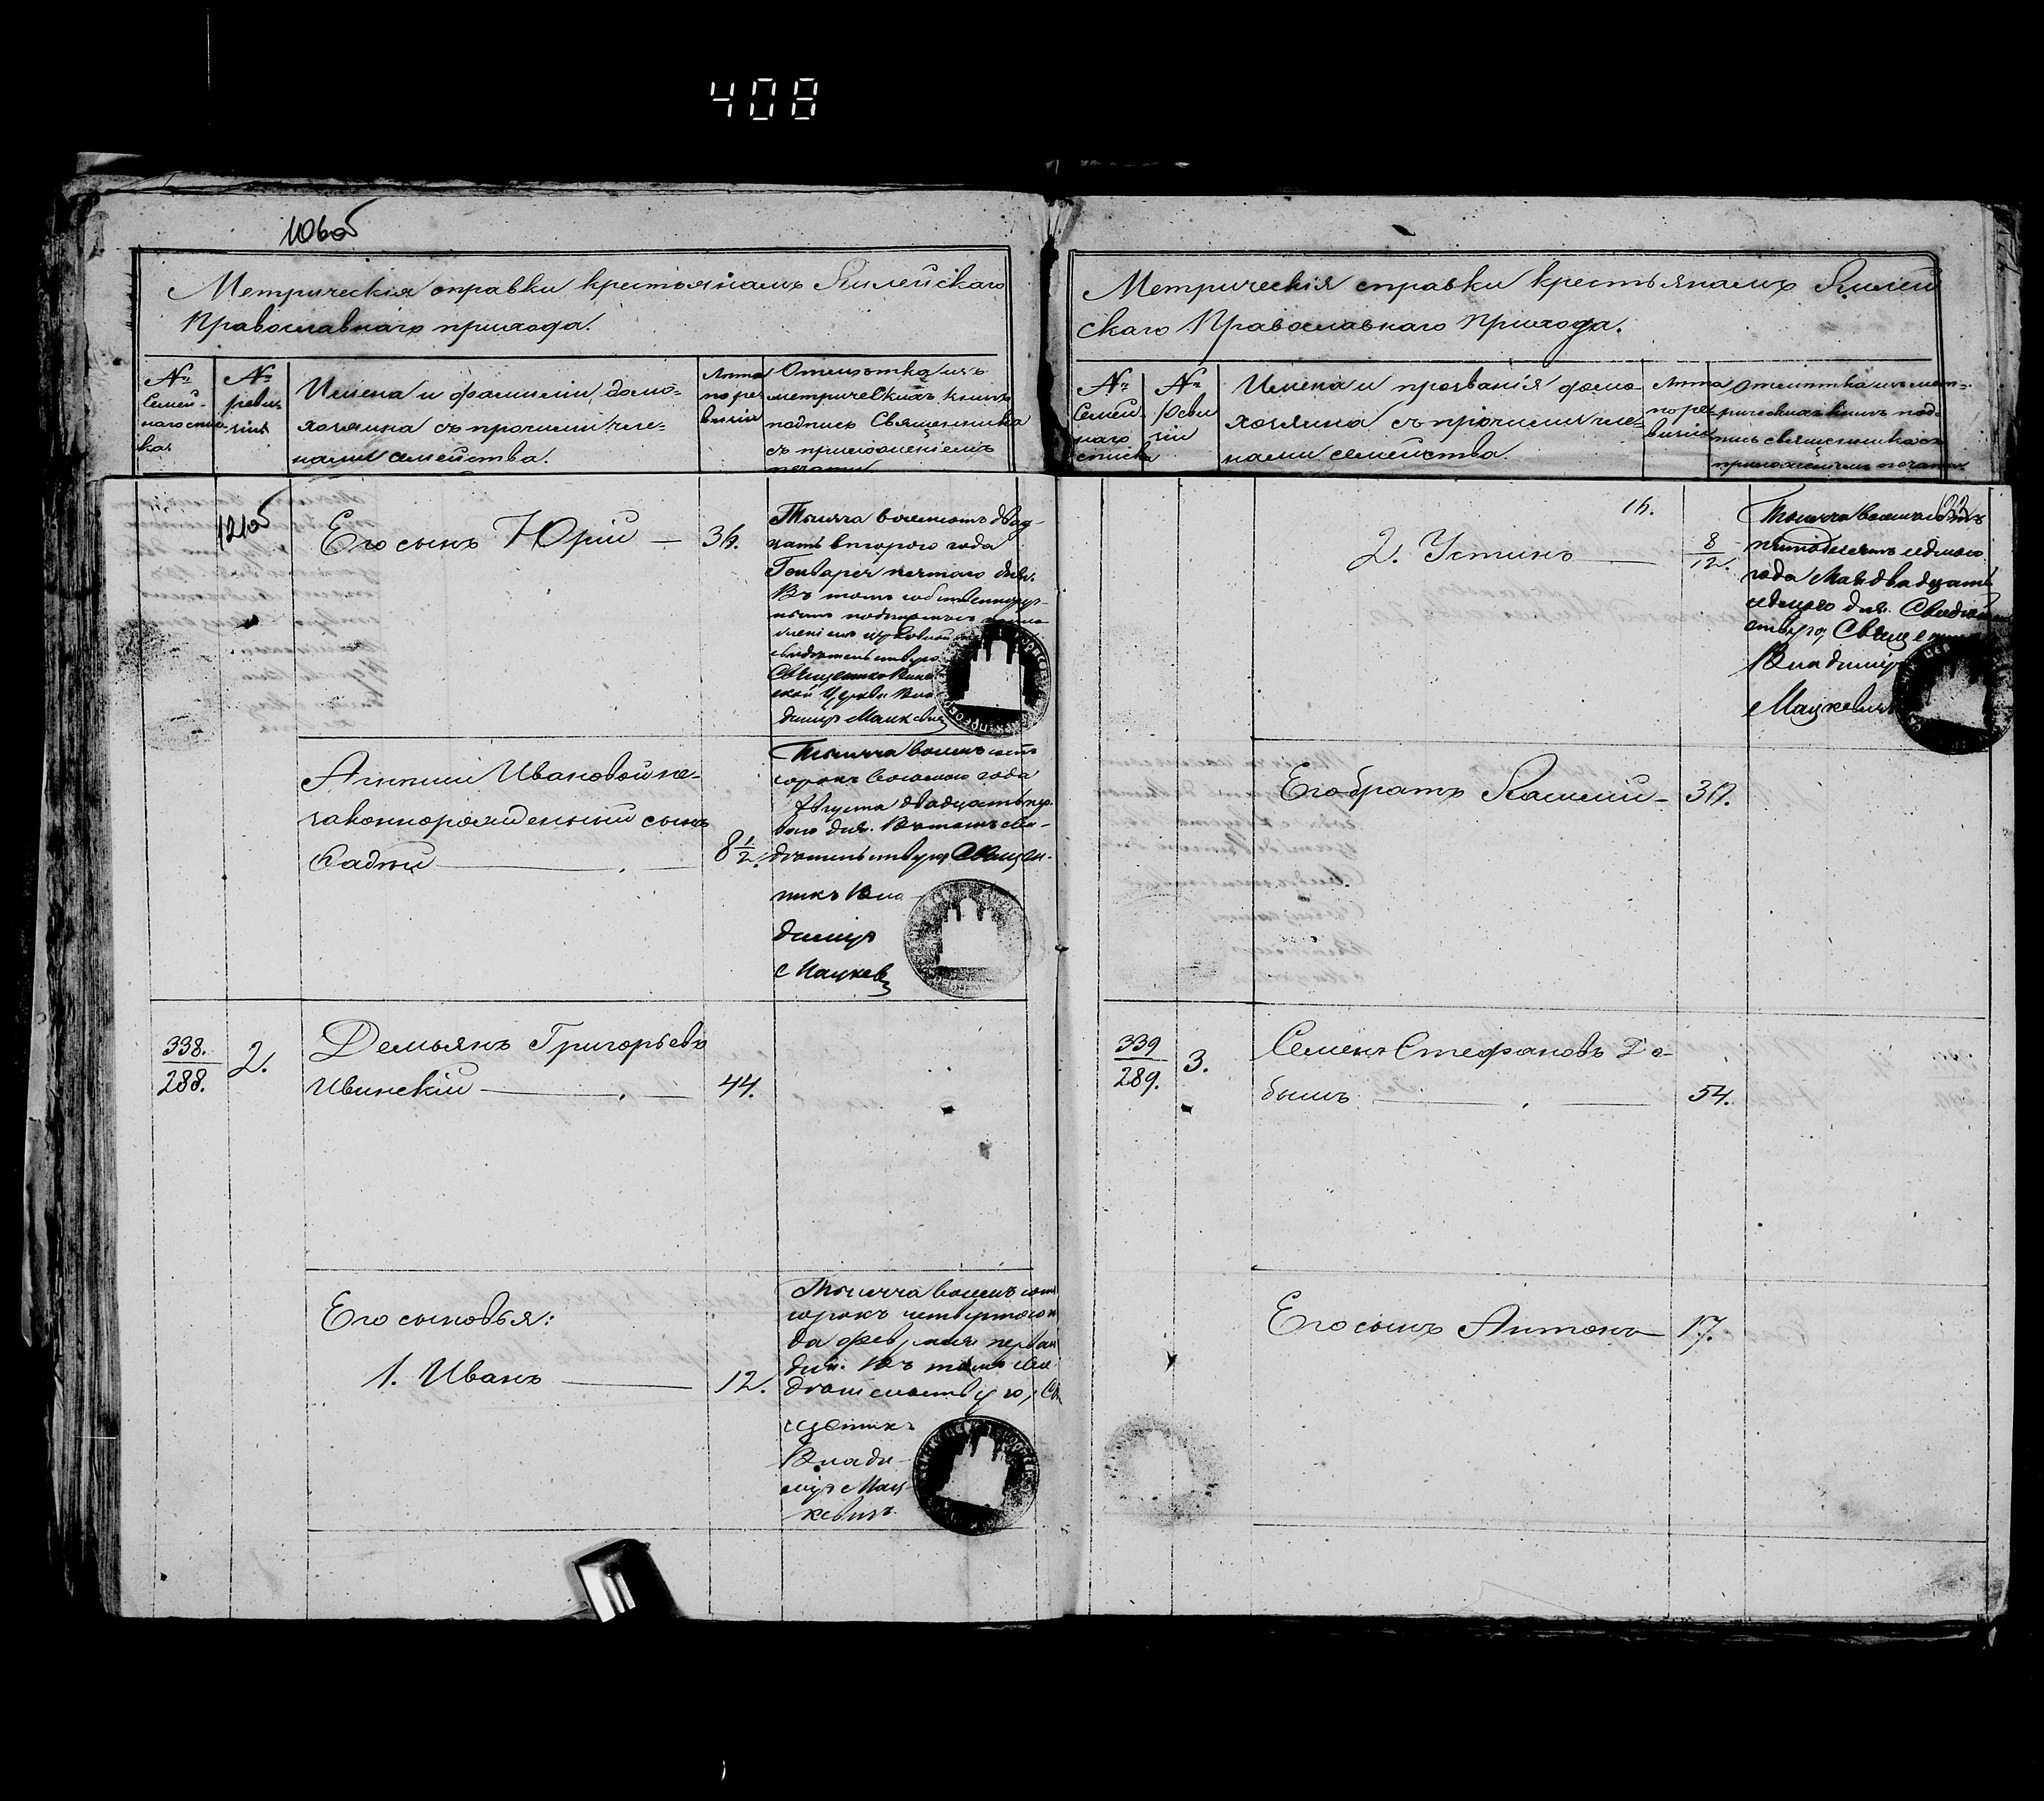 408
106об
Метрическія справки крестьянамъ Килейскаго
Православнаго прихода.
№
Семей-
наго спис-
ка
№
ревизіи
Имена и фамиліи домо-
хозяина съ прочими чле-
нами семейства.
Лѣта
по ре-
визіи
Отмѣтка изъ
метрическихъ книгъ
подпись Священника
съ приложеніемъ
печати
121об
Его сынъ Юрій — 36.
Тысяча восемсотъ двад-
цать второго года
Генваря пятого дня.
Въ томъ собственноруч-
нымъ подписомъ
церковной
свидѣтельствую
Священникъ
ской Церкви Вла
диміръ Мацкевичъ
Агапіи Ивановой не-
законнорожденный сынъ
8 1/2.
Тысяча восемьсотъ
сорокъ восьмого года
Августа двадцать пер-
вого дня. Въ томъ сви-
дѣтельствую, Священ-
никъ Вла
диміръ
Мацкев
338.
288.
2.
Демьянъ Григорьевъ
Ивинскій — 44.
Его сыновья:
1. Иванъ — 12.
Тысяча восемьсотъ
сорокъ четвертого го
да февраля перваго
дня. Въ томъ сви-
дѣтельствую, Свя
щеникъ
Влади-
міръ Мац
кевичъ
Метрическія справки крестьянамъ Килей
скаго Православнаго Прихода.
№
Семей
наго
списка
№
Реви
зіи
Имена и прозванія домо-
хозяина съ прочими чле-
нами семейства.
Лѣта
по ре-
визіи
Отмѣтка изъ мет-
рическихъ книгъ под-
пись священника съ
приложеніемъ печати
16.
2. Устинъ — 8/12
Тысяча восемьсотъ
пятьдесятъ седмого
года Мая двадцать
седмого дня. Свидѣтель
ствую, Священникъ
Владиміръ
Мацкевичъ
Его братъ — 37.
339
289.
3.
Семенъ Стефановъ До-
бышъ — 54.
Его сынъ Антонъ — 17.